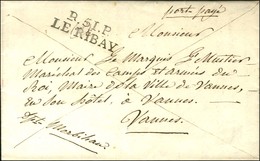 port payé
P.51.P.
LE RIBAY
Monsieur
Monsieur Le Marquis
Maréchal des Camps et Armées du
Roi, Maire de la Ville de Vannes,
en son hôtel, à Vannes.
Vannes.
Morbihan